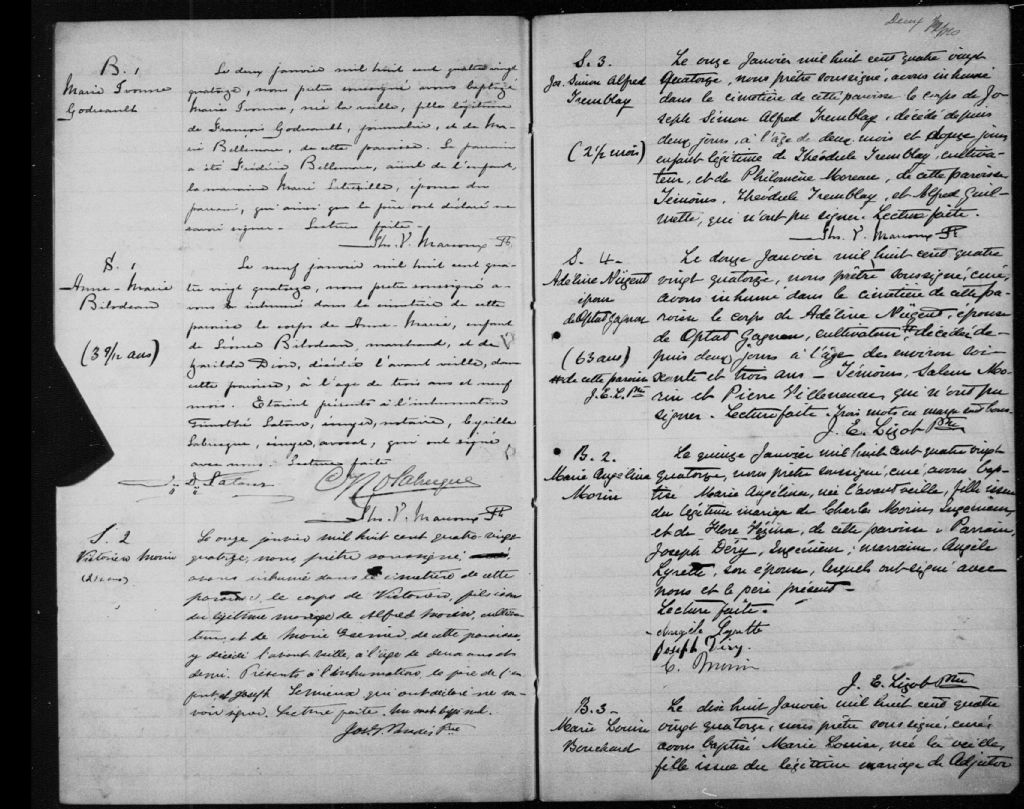 B. 1
Marie Ivonne
Godreault
Le deux janvier mil huit cent quatre vingt
quatorze, nous prêtre soussigné avons baptizé
Marie Ivonne, née la veille, fille légitime
de François Godreault, journalier, et de Ma-
rie Bellemare, de cette paroisse. Le parrain
a été Frédéric Bellemare, aïeul de l'enfant,
la marraine Marie épouse du
parrain, qui ainsi que le père ont déclaré ne
savoir signer. Lecture faite.
Ths. V. Marcoux Ptr.
S. 1
Anne-Marie
Bilodeau
(3 9/12 ans)
Le neuf janvier mil huit cent qua-
tre vingt quatorze, nous prêtre soussigné a-
vons inhumé dans le cimetière de cette
paroisse le corps de Anne-Marie, enfant
de Bilodeau, marchand, et de
Dion, décédée l'avant veille, de
cette paroisse, à l'age de trois ans et neuf
mois. Etaient présents à l'inhumation
Timothé notaire, Cyrille
Labrecque, avocat, qui ont signé
avec nous. Lecture faite
Labrecque
Ths. V. Marcoux Ptr.
S. 2
Victorien Morin
Le onze janvier mil huit cent quatre vingt
quatorze, nous, prêtre soussigné,
avons inhumé dans le cimetière de cette
paroisse, le corps de Victorien, fils issu
du légitime mariage de Alfred Morin, cultiva-
teur, et de Marie de cette paroisse,
y décédé l'avant veille, à l'âge de deux ans et
demi. Présents à l'inhumation, le père de l'en-
fant, et Joseph Lemieux qui ont déclaré ne sa-
voir signer. Lecture faite. Un mot nul.
Ptre
Deux
S. 3.
Jos. Simon Alfred
Tremblay
(2 1/2 mois)
Le onze Janvier mil huit cent quatre vingt
quatorze, nous prêtre soussigné, avons inhumé
dans le cimetière de cette paroisse le corps de Jo-
seph Siméon Alfred Tremblay, décédé depuis
deux jours, à l'âge de deux mois et douze jours
enfant légitime de Théodule Tremblay, cultiva-
teur, et de Philomène Moreau, de cette paroisse
Témoins, Théodule Tremblay, et Alfred Guil-
mette, qui n'ont pu signer. Lecture faite.
Ths. V. Marcoux Ptr.
S. 4-
Adeline Nugent
épouse
de Optat Gagnon
(63 ans)
# de cette paroisse
J. E. L. Ptre
Le douze Janvier mil huit cent quatre
vingt quatorze, nous prêtre soussigné, curé,
avons inhumé dans le cimetière de cette pa-
roisse le corps de Adeline Nugent, épouse
de Optat Gagnon, cultivateur, # décédée de-
puis deux jours à l'âge des environ soi-
xante et trois ans - Témoins, Salem Mo-
rin et Pierre Villeneuve, qui n'ont pu
signer. Lecture faite. Trois mots en marge sont bons.
J. E. Lizot Ptre
B. 2.
Marie Angélina
Morin
Le quinze Janvier mil huit cent quatre vingt
quatorze, nous prêtre soussigné, curé, avons bap-
tisé Marie Angélina, née l'avant veille, fille issue
du légitime mariage de Charles Morin, Ingénieur,
et de Flore Vézina, de cette paroisse. Parrain,
Joseph Déry, Ingénieur; marraine, Angèle
Lyrette, son épouse, lesquels ont signé avec
nous et le père présent-
Lecture faite-
Angèle Lyrette
Joseph Déry.
C. Morin
J. E. Lizot Ptre
B. 3-
Marie Louise
Bouchard
Le dix huit Janvier mil huit cent quatre
vingt quatorze, nous prêtre soussigné, curé,
avons baptisé Marie Louise, née la veille,
fille issue du légitime mariage de Adjutor